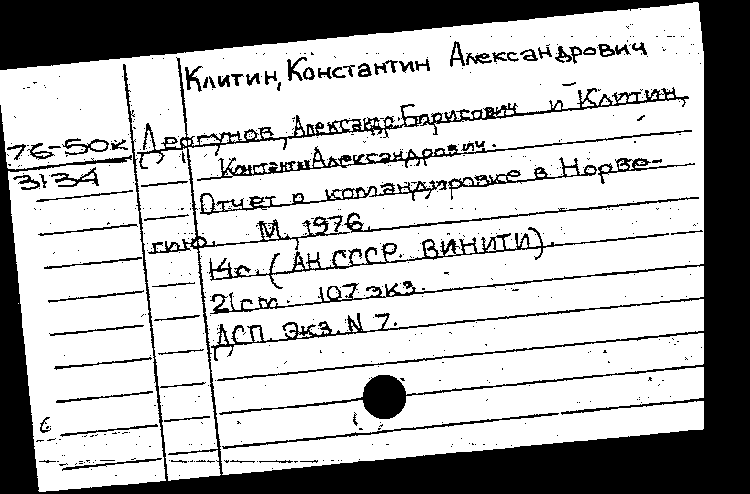 Клитин, Константин Александрович
76-50к Дергунов, Александр Борисович и Клитин,
3134 Константин Александрович.
Отчет о командировке в Норве-
гию. М., 1976.
14с. (АН СССР. ВИНИТИ).
21cm. 107 экз.
ДСП. Экз. N 7.
6